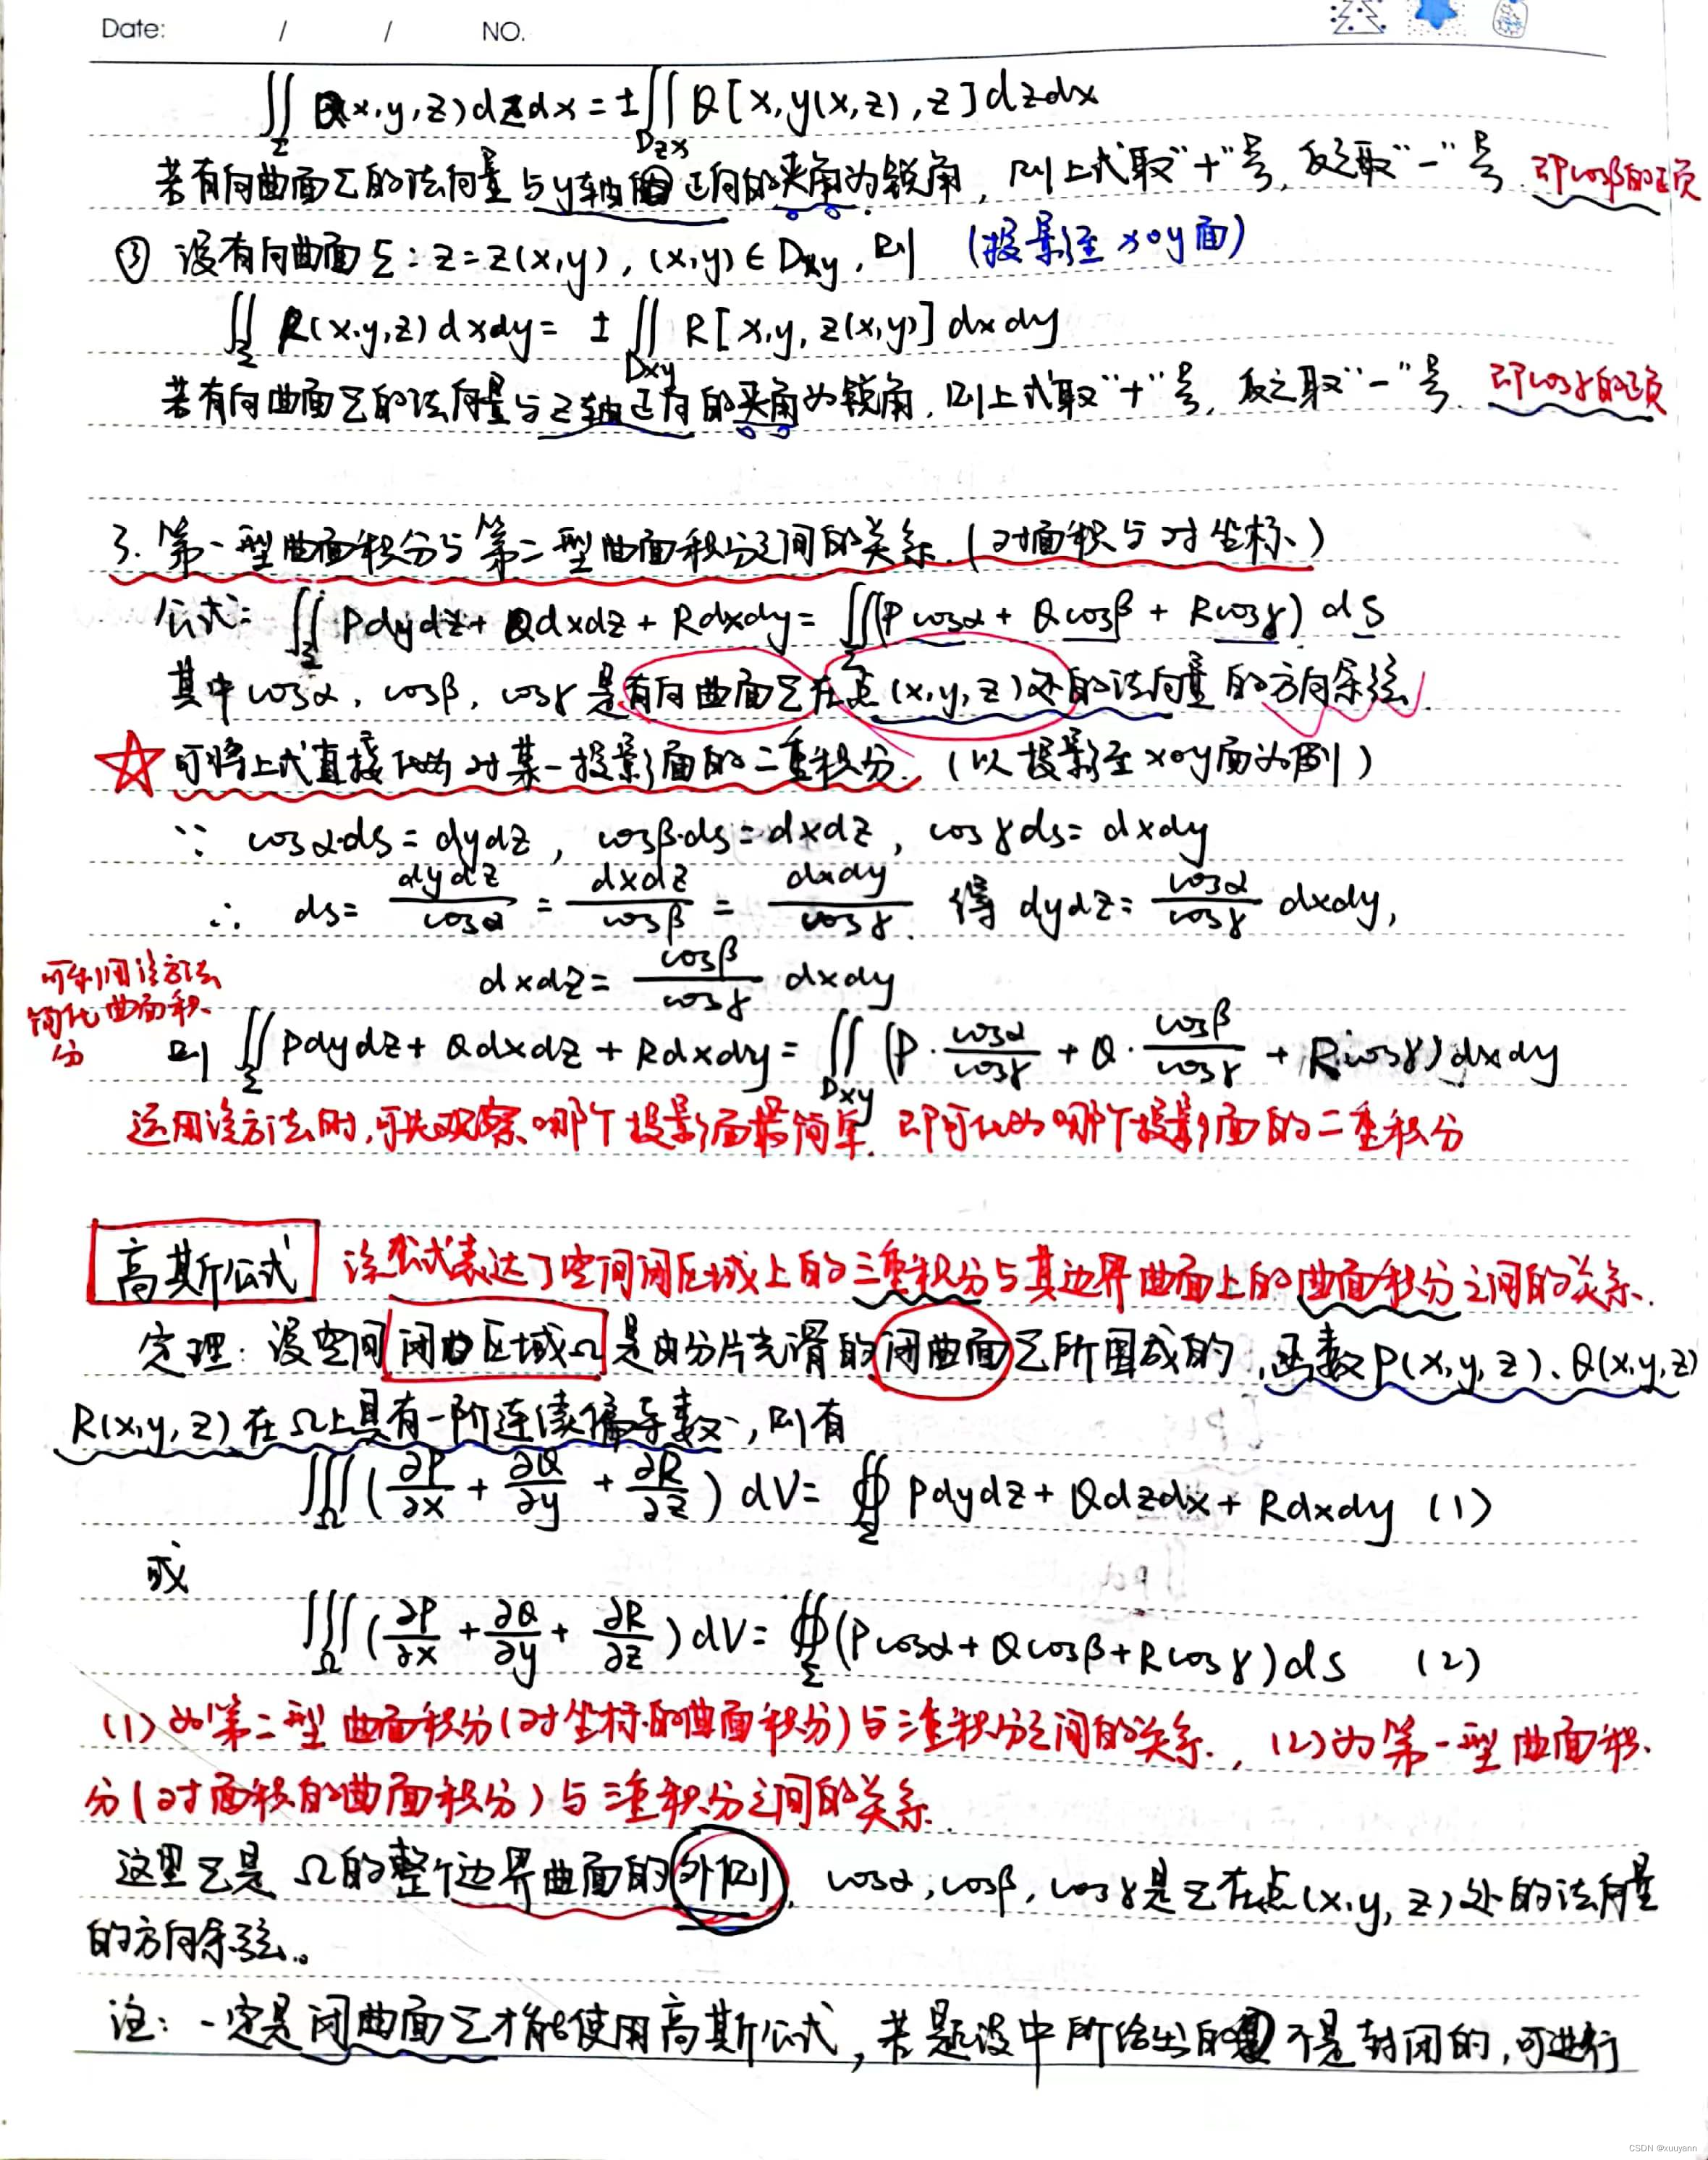 Date: / / NO.
∬_Σ Q(x,y,z)dzdx=±∬_{Dzx} Q[x,y(x,z),z]dzdx
若有向曲面Σ的法向量与y轴正向的夹角为锐角,则上式取"+"号,反之取"-"号.即cosβ的正负
③ 设有向曲面Σ:z=z(x,y),(x,y)∈Dxy,则 (投影至xoy面)
∬_Σ R(x,y,z)dxdy=±∬_{Dxy} R[x,y,z(x,y)]dxdy
若有向曲面Σ的法向量与z轴正向的夹角为锐角,则上式取"+"号,反之取"-"号.即cosγ的正负
3.第一型曲面积分与第二型曲面积分之间的关系.(对面积与对坐标)
公式:∬_Σ Pdydz+Qdxdz+Rdxdy=∬_Σ(Pcosα+Qcosβ+Rcosγ)ds
其中cosα,cosβ,cosγ是有向曲面Σ在点(x,y,z)处的法向量的方向余弦.
☆可将上式直接化为对某一投影面的二重积分.(以投影至xoy面为例)
∵ cosα·ds=dydz,cosβ·ds=dxdz,cosγds=dxdy
∴ ds=dydz/cosα=dxdz/cosβ=dxdy/cosγ.得dydz=cosα/cosγ dxdy,
dxdz=cosβ/cosγ·dxdy
可利用该方法
简化曲面积
分
则∬_Σ Pdydz+Qdxdz+Rdxdy=∬_{Dxy}(P·cosα/cosγ+Q·cosβ/cosγ+R·cosγ)dxdy
运用该方法时,可先观察哪个投影面最简单.即可化为哪个投影面的二重积分
高斯公式 该公式表达了空间闭区域上的三重积分与其边界曲面上的曲面积分之间的关系.
定理:设空间闭区域Ω是由分片光滑的闭曲面Σ所围成的,函数P(x,y,z)、Q(x,y,z)
R(x,y,z)在Ω上具有一阶连续偏导数,则有
∭_Ω(∂P/∂x+∂Q/∂y+∂R/∂z)dV=∯_Σ Pdydz+Qdzdx+Rdxdy (1)
或
∭_Ω(∂P/∂x+∂Q/∂y+∂R/∂z)dV=∯_Σ(Pcosα+Qcosβ+Rcosγ)ds (2)
(1)为第二型曲面积分(对坐标的曲面积分)与三重积分之间的关系.,(2)为第一型曲面积
分(对面积的曲面积分)与三重积分之间的关系.
这里Σ是Ω的整个边界曲面的外侧,cosα,cosβ,cosγ是Σ在点(x,y,z)处的法向量
的方向余弦。
注:一定是闭曲面Σ才能使用高斯公式,若题设中所给出的不是封闭的,可进行
CSDN @xuuyann